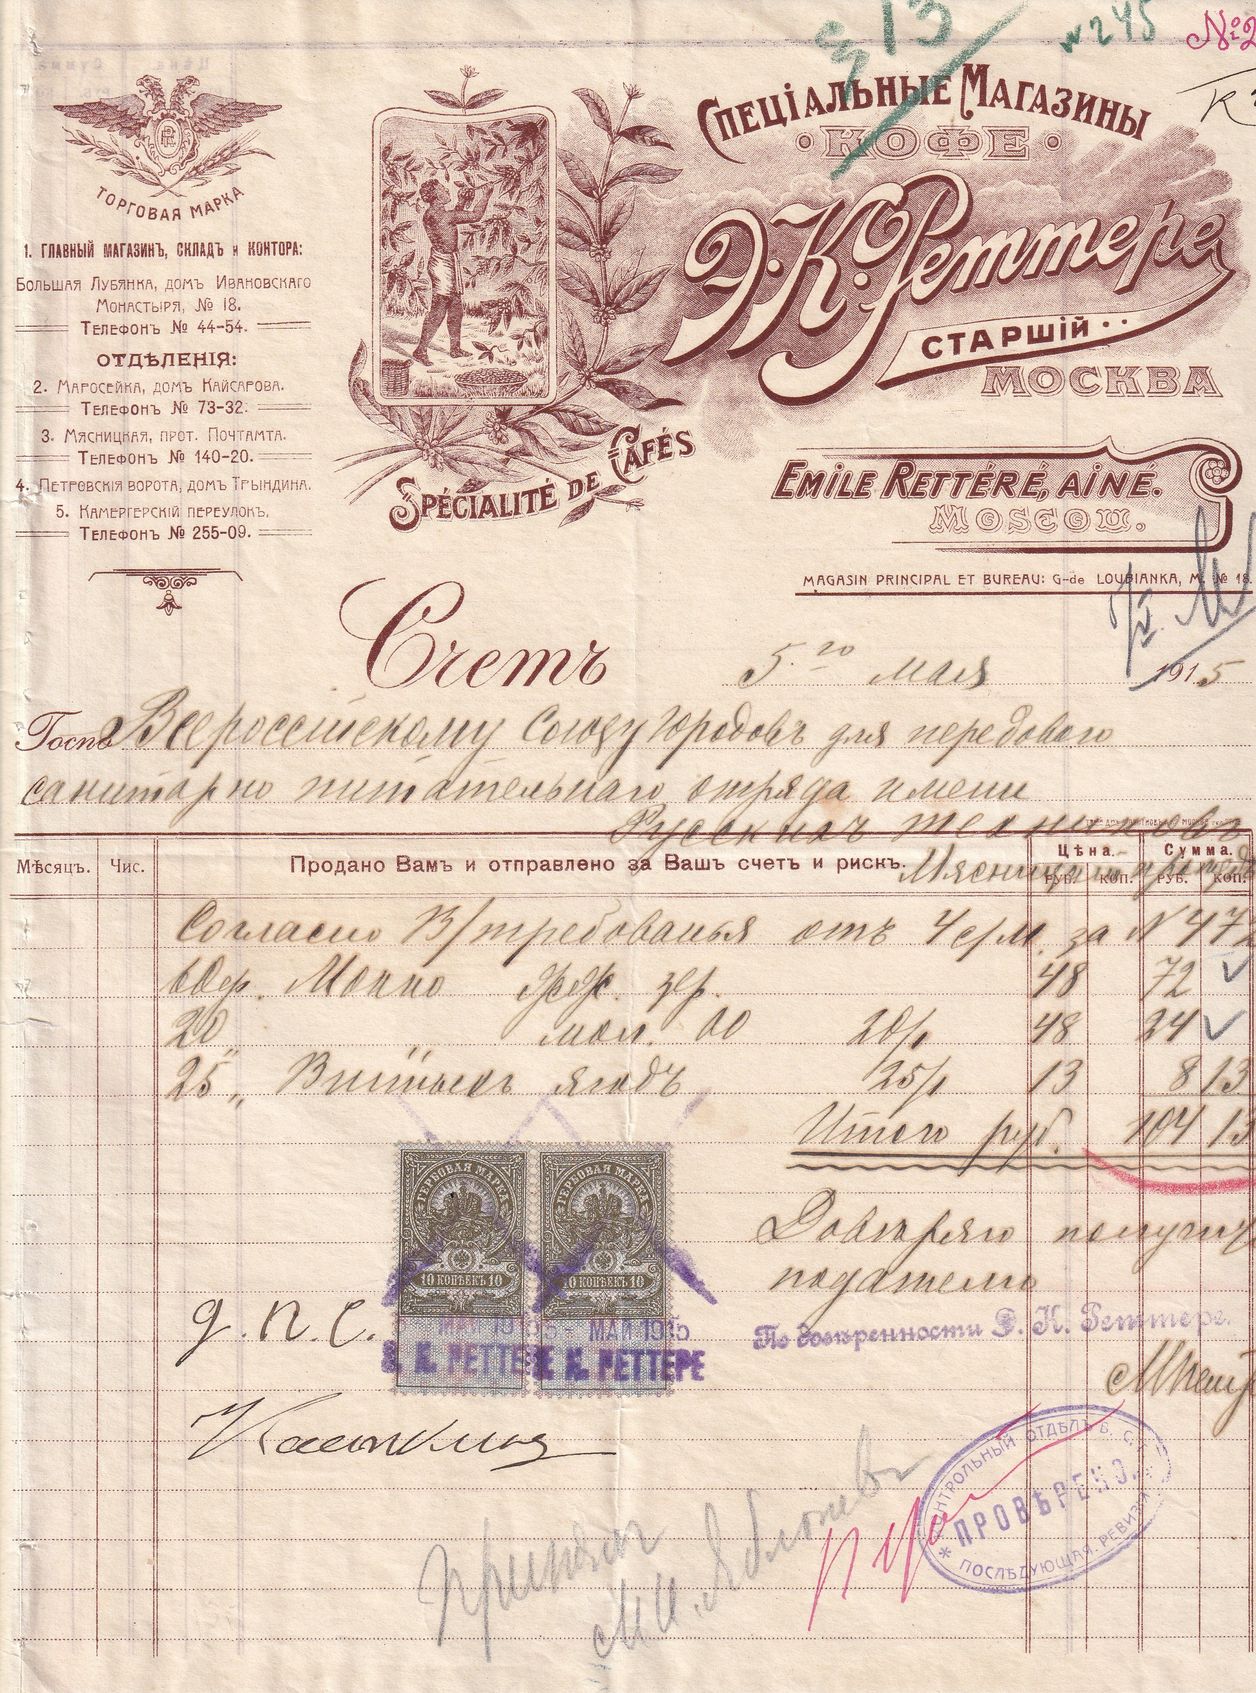 § 13
№ 245
№ 2
Спеціальные Магазины
КОФЕ
Э. К. Реттере
СТАРШІЙ
МОСКВА
ТОРГОВАЯ МАРКА
1. ГЛАВНЫЙ МАГАЗИНЪ, СКЛАДЪ и КОНТОРА:
Большая Лубянка, домъ Ивановскаго
Монастыря, № 18.
Телефонъ № 44-54.
ОТДѢЛЕНІЯ:
2. Маросейка, домъ Кайсарова.
Телефонъ № 73-32.
3. Мясницкая, прот. Почтамта.
Телефонъ № 140-20.
4. Петровскія ворота, домъ Трындина.
5. Камергерскій переулокъ.
Телефонъ № 255-09.
Spécialité de Cafés
Emile Rettéré, Ainé.
Moscou.
MAGASIN PRINCIPAL ET BUREAU: G-de LOUBIANKA, M. № 18.
Счетъ
5 го мая 1915
Госпо Всероссійскому Союзу Городовъ для передового
санитарно питательнаго отряда имени
Русскихъ техниковъ
Мѣсяцъ. Чис. Продано Вамъ и отправлено за Вашъ счетъ и рискъ. Цѣна. Сумма.
Мясницкая
РУБ. КОП. РУБ. КОП.
Согласно В/требованья отъ 4 с/м. за № 472
60 ф. Мокко жж. зер. 48 72
20 " " мол. 00 20/1 48 24
25 " Винныхъ ягодъ 25/1 13 8 13
Итого руб. 104 13
Довѣряю получить
подателю
ГЕРБОВАЯ МАРКА ГЕРБОВАЯ МАРКА
10 КОПѢЕКЪ 10 10 КОПѢЕКЪ 10
МАЙ 1915 - МАЙ 1915
К. РЕТТЕРЕ К. РЕТТЕРЕ
По довѣренности Э. К. Реттере.
д. п. с.
КОНТРОЛЬНЫЙ ОТДѢЛЪ В. С. Г.
ПРОВѢРЕНО.
ПОСЛѢДУЮЩАЯ РЕВИЗІЯ
Принялъ
М. И. Яблоневъ